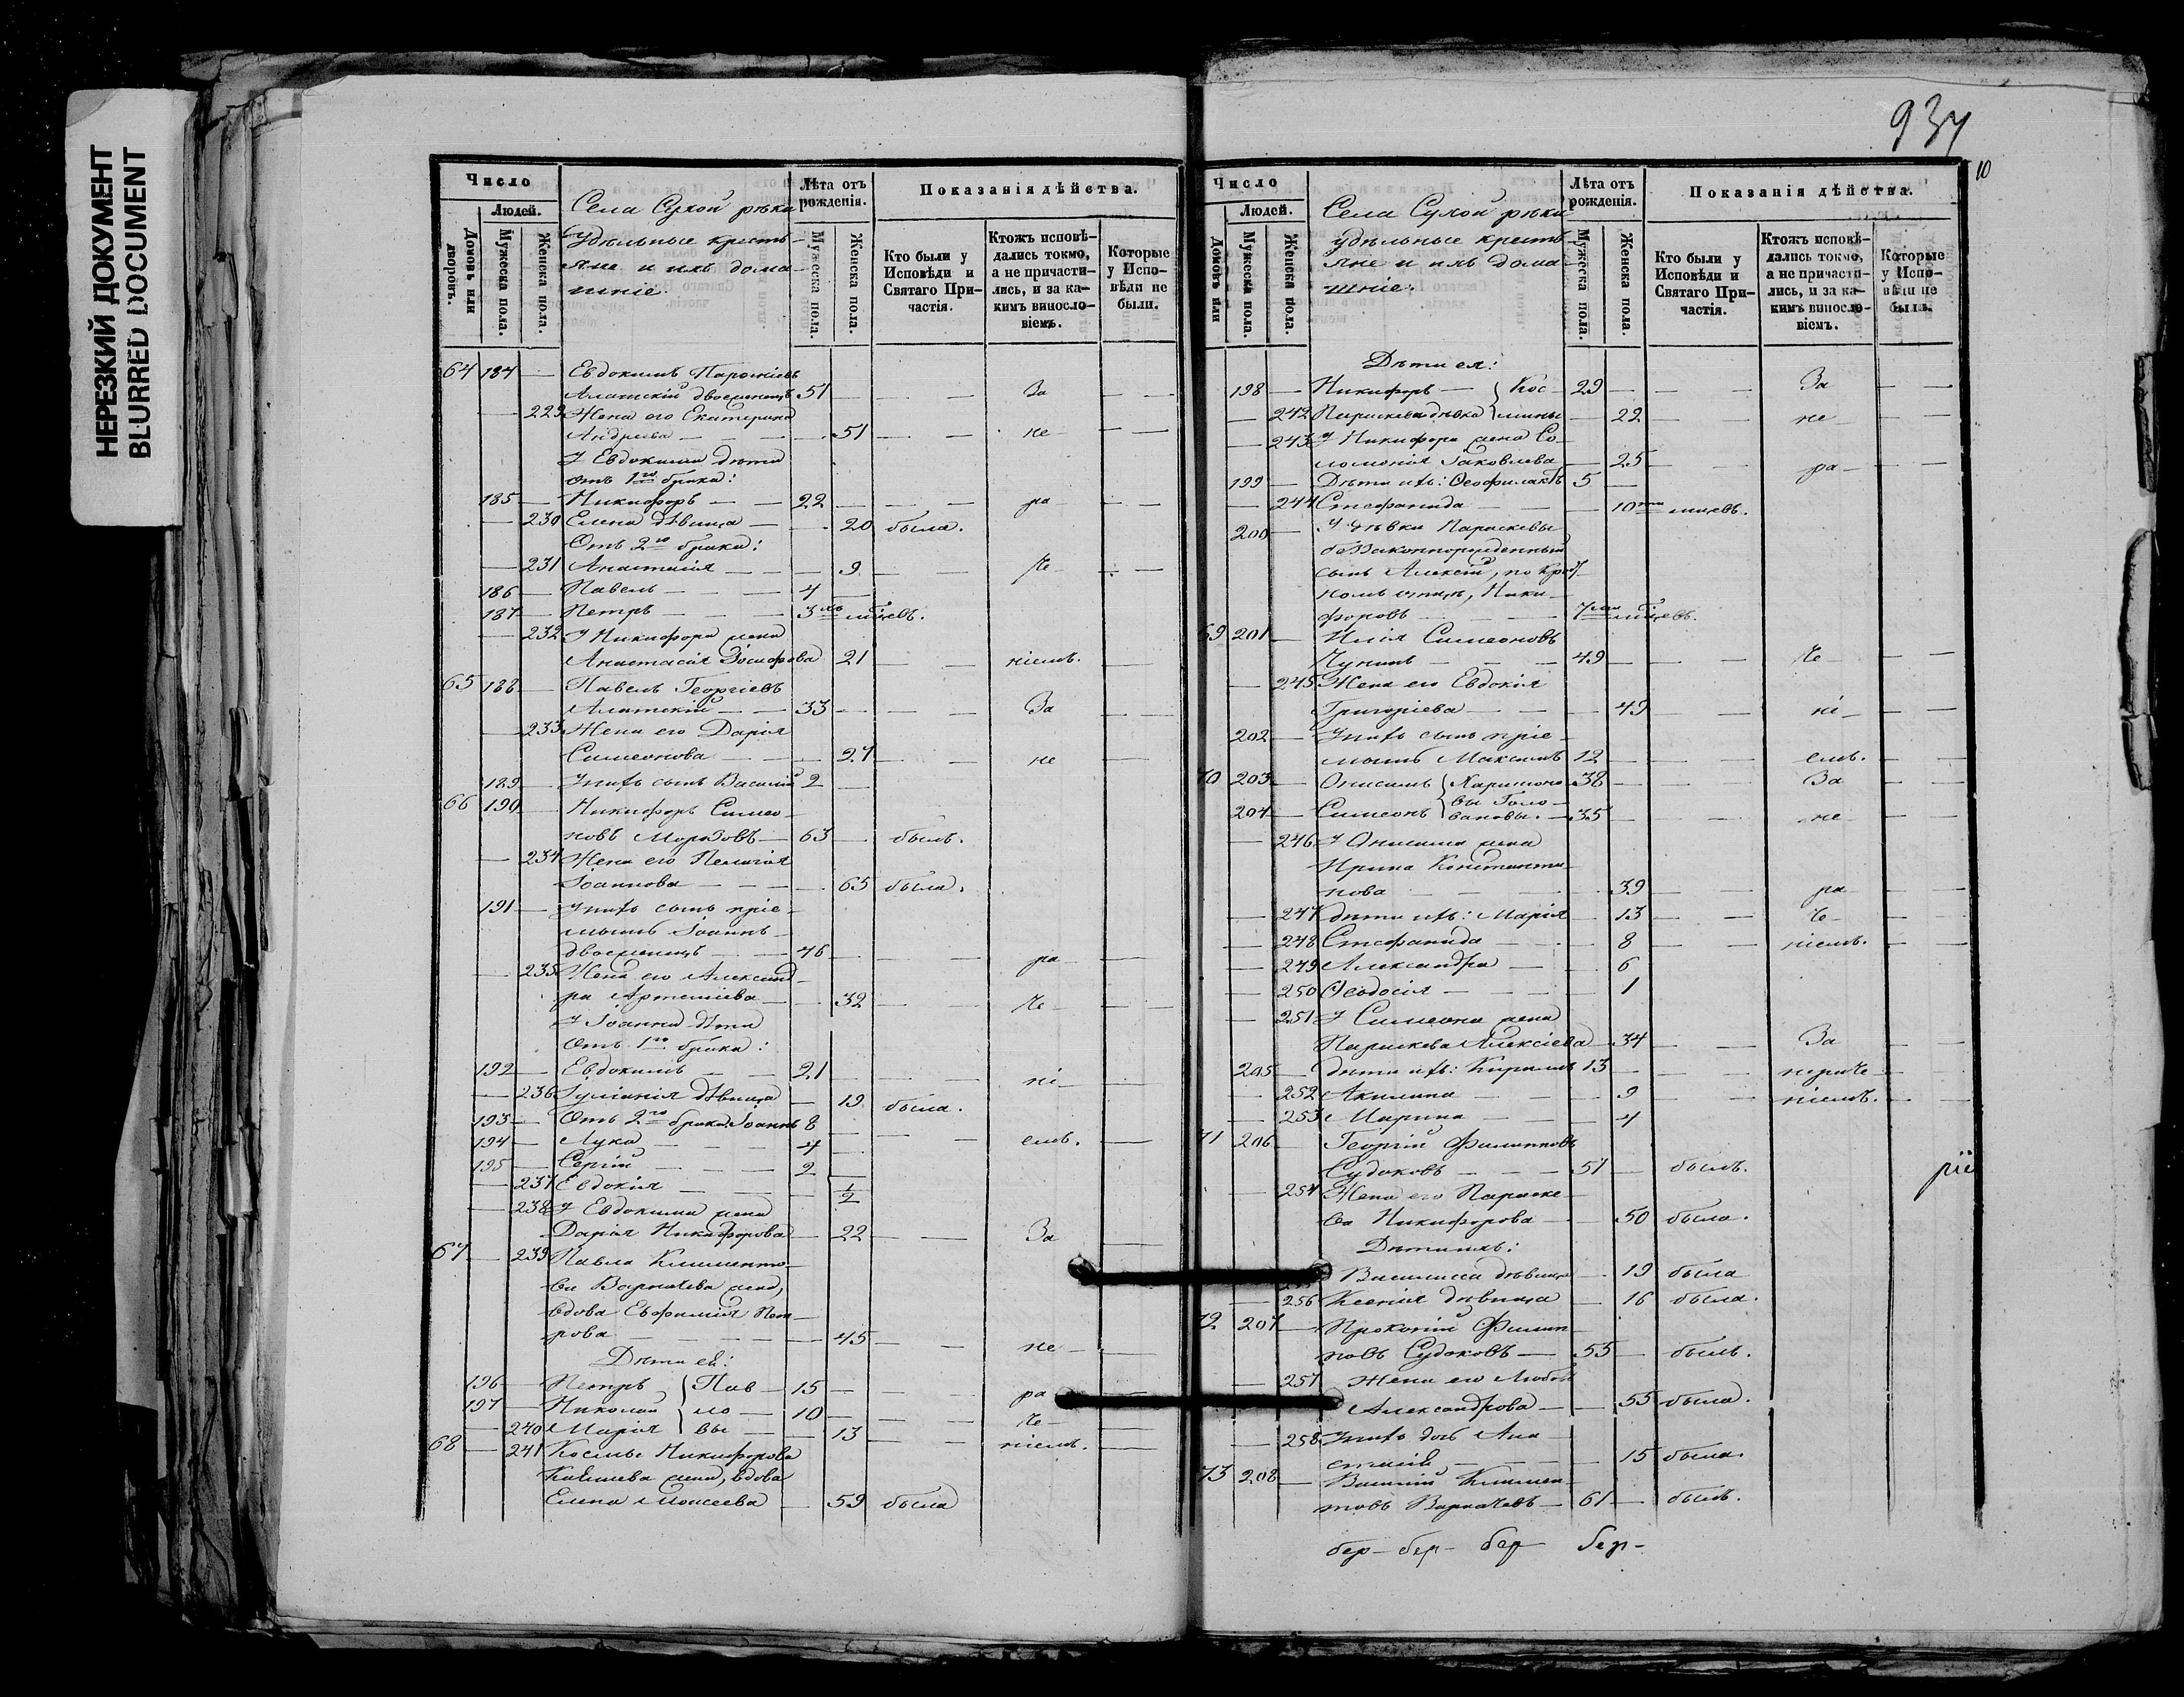 НЕРЕЗКИЙ ДОКУМЕНТ
BLURRED DOCUMENT
Число
Людей.
Домовъ или дворовъ.
Мужеска пола.
Женска пола.
Села Сухой рѣки
удѣльные кресть-
яне и ихъ дома-
шніе.
Лѣта отъ рожденія.
Мужеска пола.
Женска пола.
Показанія дѣйства.
Кто были у Исповѣди и Святаго Причастія.
Ктожъ исповѣдались токмо, а не причастились, и за какимъ винословіемъ.
Которые у Исповѣди не были.
64 184 — Евдокимъ
двоеженецъ 51 — — За — —
— 229 Жена его Екатерина
Андреева — — 51 — — не — —
У Евдокима дѣти
отъ 1го брака:
185 — Никифоръ — — 22 — — — ра — —
— 230 Елена дѣвица — — 20 была.
Отъ 2го брака:
— 231 Анастасія — — — 9 — — че — —
186 — Павелъ — — — 4 —
187 — Петръ — — 3хъ мѣсяцевъ.
— 232 У Никифора жена
Анастасія Іосифова 21 — — ніемъ. —
65 188 — Павелъ Георгіевъ
— — 33 — — — За — —
— 233 Жена его Дарія
Симеонова — — 27 — — не — —
189 — У нихъ сынъ Василій 2 —
66 190 — Никифоръ Симео-
новъ Морозовъ — 63 — былъ.
— 234 Жена его Пелагія
Іоаннова — — — 65 была.
191 — У нихъ сынъ пріе-
мышъ Іоаннъ
двоеженецъ — — 46 — — — ра — —
— 235 Жена его Александ-
ра Артеміева — — 32 — — че — —
У Іоанна дѣти
отъ 1го брака:
192 — Евдокимъ — — 21 — — — ні — —
— 236 Іуліанія дѣвица — 19 была.
193 — Отъ 2го брака: Іоаннъ 8 — — — емъ. —
194 — Лука — — — 4 —
195 — Сергій — — — 2 —
— 237 Евдокія — — — 1/2
— 238 У Евдокима жена
Дарія Никифорова — 22 — — За —
67 — 239 Павла Климентье-
ва Варначева жена,
вдова Евфимія Пет-
рова — — — — 45 — — не — —
Дѣти ея:
196 — Петръ } Пав — 15 — — — ра —
197 — Николай } ло — 10 — — — че —
— 240 Марія } вы — — 13 — — ніемъ. —
68 — 241 Космы Никифорова
жена, вдова
Елена Моисеева — 59 была
934
10
Число
Людей.
Домовъ или
Мужеска пола.
Женска пола.
Села Сухой рѣки
удѣльные кресть-
яне и ихъ дома-
шніе.
Лѣта отъ рожденія.
Мужеска пола.
Женска пола.
Показанія дѣйства.
Кто были у Исповѣди и Святаго Причастія.
Ктожъ исповѣдались токмо, а не причастились, и за какимъ винословіемъ.
Которые у Исповѣди не были.
Дѣти ея:
198 — Никифоръ — } Кос- 29 — — — За — —
— 242 Параскева дѣвка } мины — 22 — — не — —
— 243 У Никифора жена Со-
ломонія Іаковлева — 25 — — ра — —
199 — Дѣти ихъ: Ѳеофилактъ 5 —
— 244 Стефанида — — 10ти мѣсяцевъ.
200 — У дѣвки Параскевы
беззаконнорожденный
сынъ Алексій, по крест-
номъ отцѣ, Ники-
форовъ — — — 7ми мѣсяцевъ.
69 201 — Илія Симеоновъ
Чунинъ — — — 49 — — — че — —
— 245 Жена его Евдокія
Григоріева — — — 49 — — ні — —
202 — У нихъ сынъ пріе-
мышъ Максимъ 12 — — — емъ. — —
70 203 — Онисимъ } Харитоно- 38 — — — За — —
204 — Симеонъ } вы Голо-
вановы. — 35 — — — не — —
— 246 У Онисима жена
Ирина Константи-
нова — — — 39 — — ра — —
— 247 дѣти ихъ: Марія — 13 — — че — —
— 248 Стефанида — — 8 — — ніемъ. — —
— 249 Александра — — 6
— 250 Ѳеодосія — — — 1
— 251 У Симеона жена
Параскева Алексіева — 34 — — За — —
205 — дѣти ихъ: Кириллъ 13 — — — нераче — —
— 252 Акилина — — — 9 — — ніемъ. — —
— 253 Марина — — — 4
71 206 — Георгій Филипповъ
Судоковъ — — — 51 — былъ.
ріе
— 254 Жена его Параске-
ва Никифорова — — 50 была.
Дѣти ихъ:
Василисса дѣвица — 19 была
— 256 Ксенія дѣвица — 16 была.
72 207 — Прокопій Филип-
повъ Судоковъ — 55 — былъ.
— 257 Жена его Любовь
Александрова — — 55 была.
— 258 У нихъ дочь Ана-
стасія — — — 15 была.
73 208 — Василій Климен-
товъ Варначевъ — 61 — былъ.
бер- бер- бер бер-